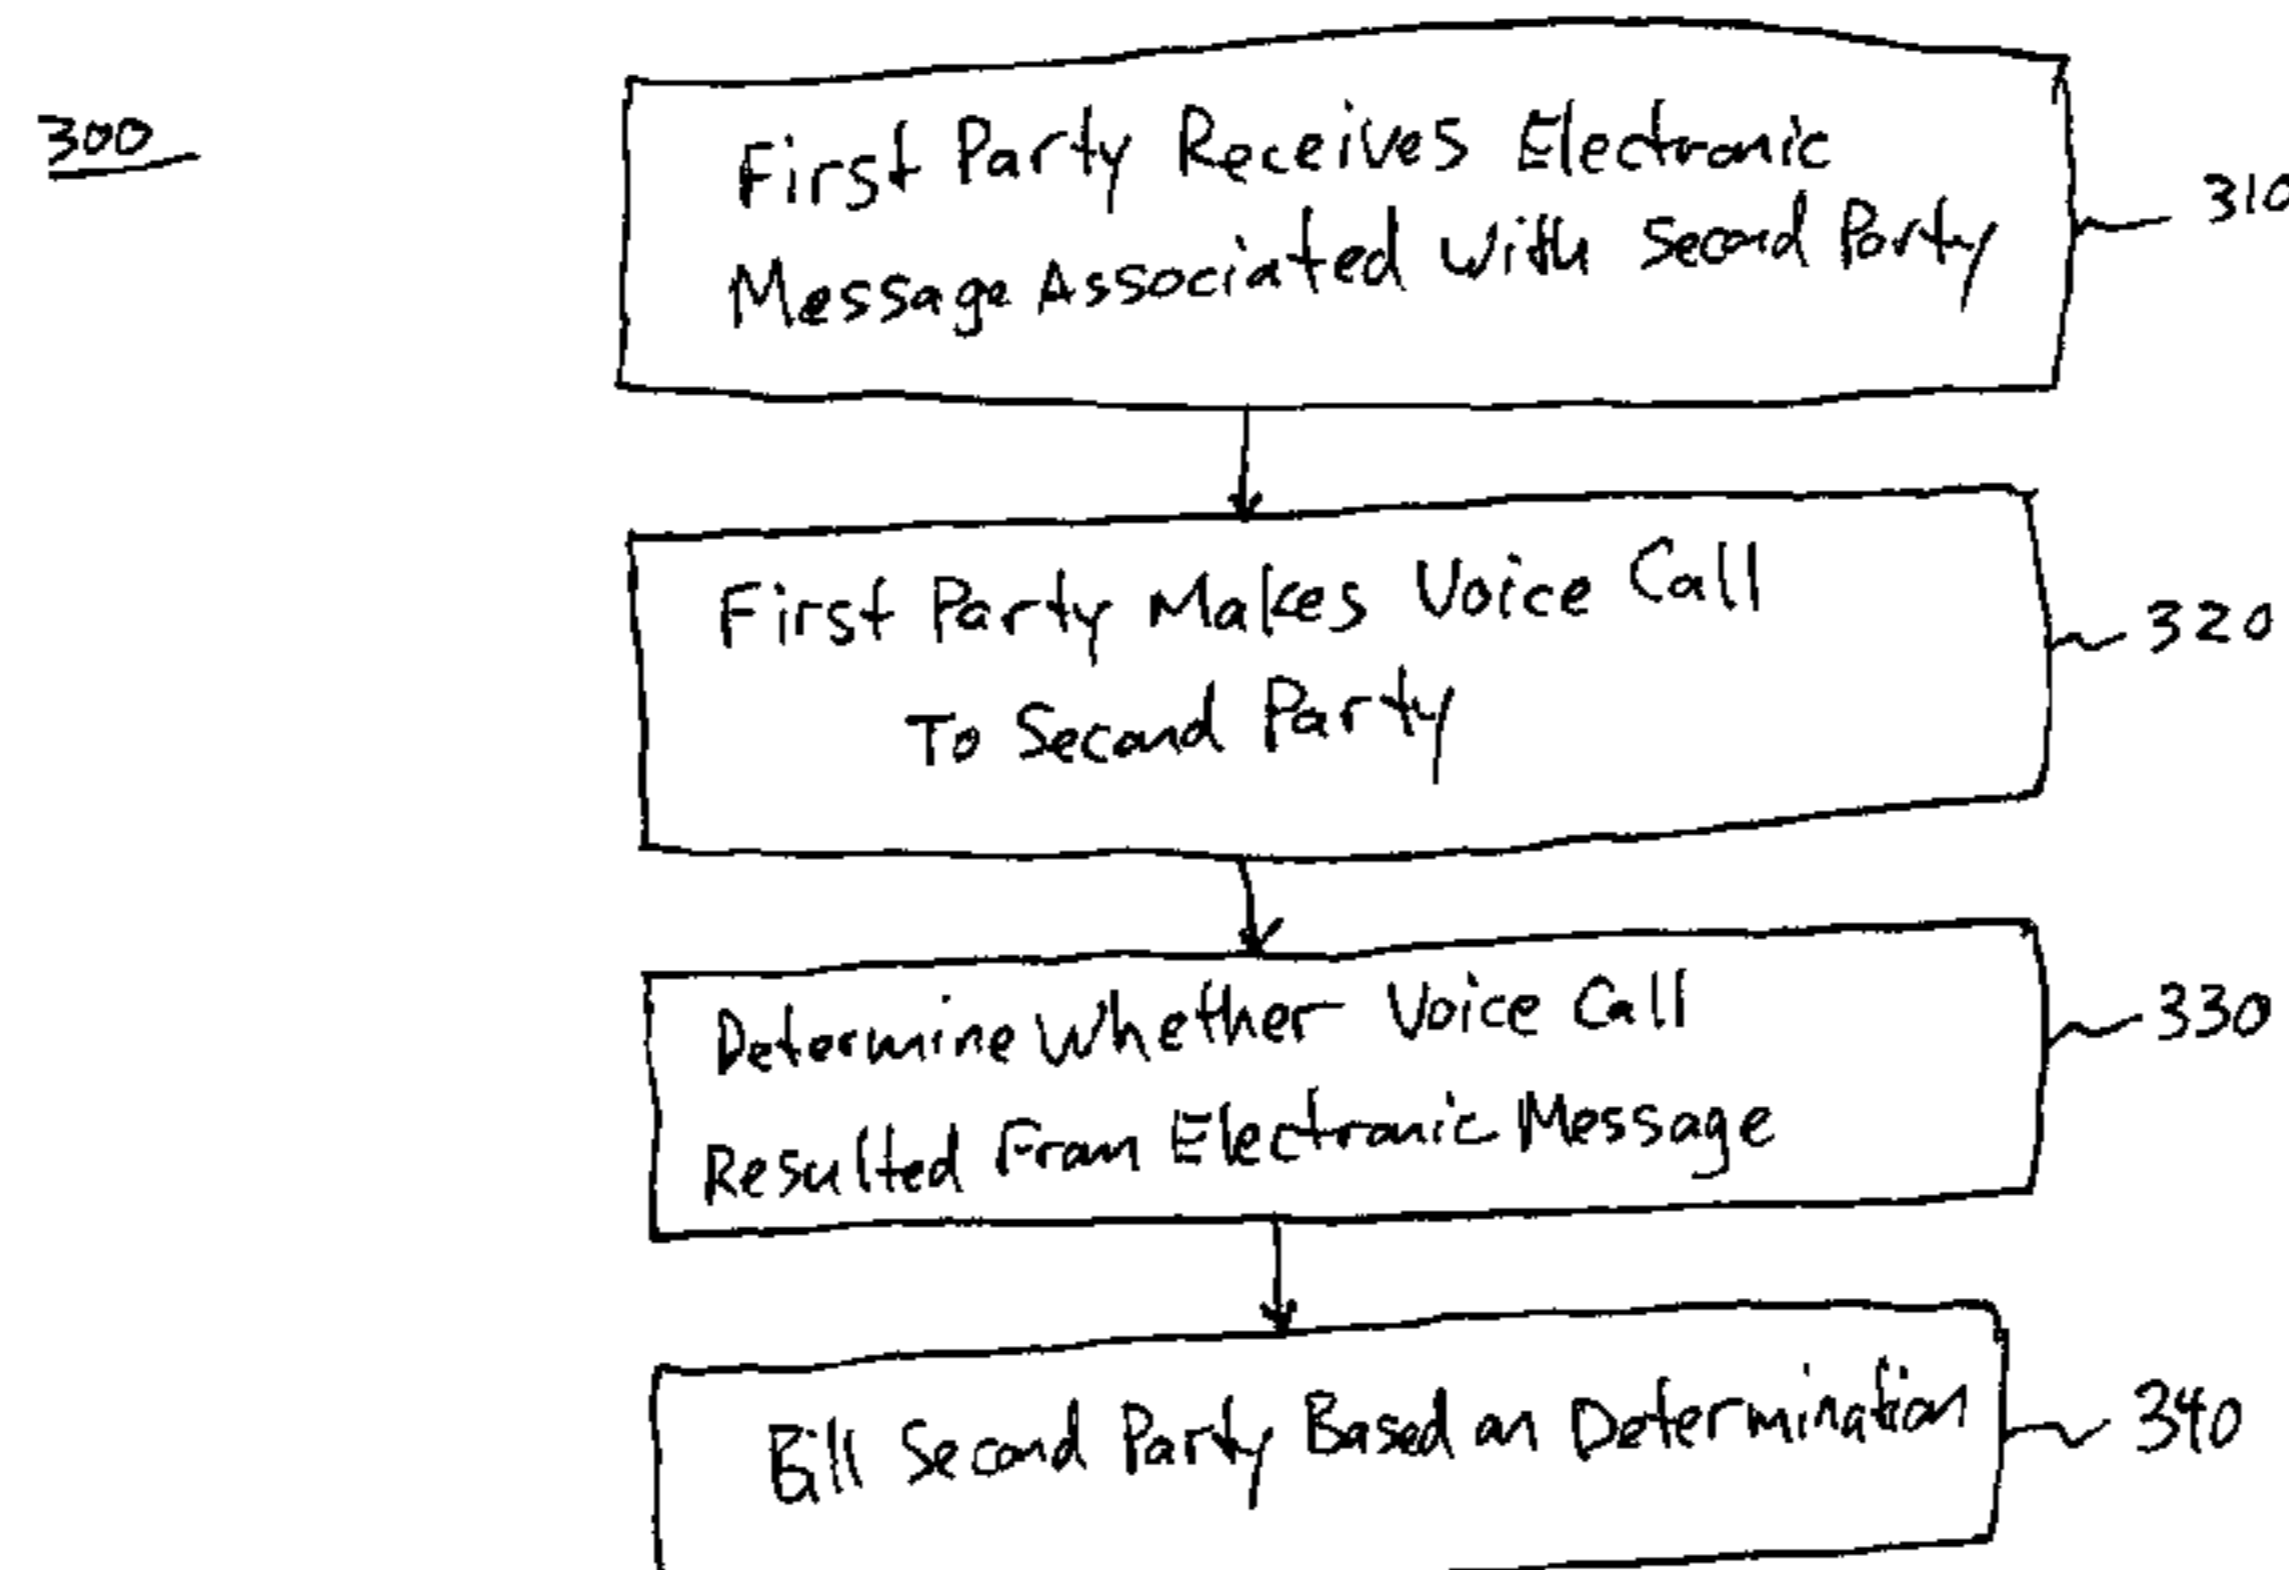 300
First Party Receives Electronic
Message Associated with Second Party
310
First Party Makes Voice Call
To Second Party
320
Determine Whether Voice Call
Resulted From Electronic Message
330
Bill Second Party Based on Determination
340